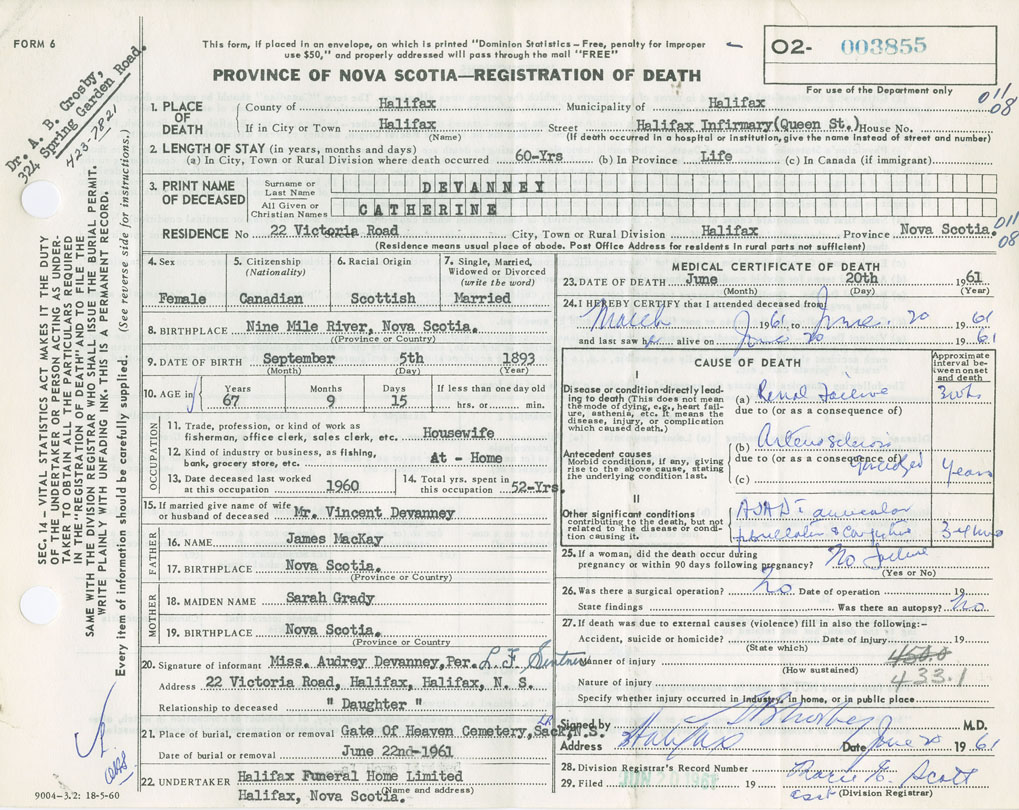 FORM 6
This form, if placed in an envelope, on which is printed "Dominion Statistics – Free, penalty for improper
use $50," and properly addressed will pass through the mail "FREE"
PROVINCE OF NOVA SCOTIA—REGISTRATION OF DEATH
O2- 003855
For use of the Department only
Dr. A. B. Crosby,
324 Spring Garden Road.
423-7821
SEC. 14 – VITAL STATISTICS ACT MAKES IT THE DUTY
OF THE UNDERTAKER OR PERSON ACTING AS UNDER-
TAKER TO OBTAIN ALL THE PARTICULARS REQUIRED
IN THE "REGISTRATION OF DEATH" AND TO FILE THE
SAME WITH THE DIVISION REGISTRAR WHO SHALL ISSUE THE BURIAL PERMIT.
WRITE PLAINLY WITH UNFADING INK. THIS IS A PERMANENT RECORD.
Every item of information should be carefully supplied. (See reverse side for instructions.)
1. PLACE OF DEATH
County of Halifax Municipality of Halifax
011
08
If in City or Town Halifax Street Halifax Infirmary(Queen St.) House No.
(Name) (If death occurred in a hospital or institution, give the name instead of street and number)
2. LENGTH OF STAY (in years, months and days)
(a) In City, Town or Rural Division where death occurred 60-Yrs (b) In Province Life (c) In Canada (if immigrant)
3. PRINT NAME OF DECEASED
Surname or Last Name DEVANNEY
All Given or Christian Names CATHERINE
RESIDENCE No 22 Victoria Road City, Town or Rural Division Halifax Province Nova Scotia.
011
08
(Residence means usual place of abode. Post Office Address for residents in rural parts not sufficient)
4. Sex
Female
5. Citizenship
(Nationality)
Canadian
6. Racial Origin
Scottish
7. Single, Married,
Widowed or Divorced
(write the word)
Married
8. BIRTHPLACE Nine Mile River, Nova Scotia.
(Province or Country)
9. DATE OF BIRTH September 5th 1893
(Month) (Day) (Year)
10. AGE in Years Months Days If less than one day old
67 9 15 hrs. or min.
OCCUPATION
11. Trade, profession, or kind of work as
fisherman, office clerk, sales clerk, etc. Housewife
12. Kind of industry or business, as fishing,
bank, grocery store, etc. At - Home
13. Date deceased last worked
at this occupation 1960
14. Total yrs. spent in
this occupation 52-Yrs.
15. If married give name of wife
or husband of deceased Mr. Vincent Devanney
FATHER
16. NAME James MacKay
17. BIRTHPLACE Nova Scotia.
(Province or Country)
MOTHER
18. MAIDEN NAME Sarah Grady
19. BIRTHPLACE Nova Scotia.
(Province or Country
20. Signature of informant Miss. Audrey Devanney,Per. L. F.
Address 22 Victoria Road, Halifax, Halifax, N. S.
Relationship to deceased " Daughter "
21. Place of burial, cremation or removal Gate Of Heaven Cemetery, Sack,N.S.
Date of burial or removal June 22nd-1961
22. UNDERTAKER Halifax Funeral Home Limited
(Name and address)
Halifax, Nova Scotia.
9004-3.2: 18-5-60
MEDICAL CERTIFICATE OF DEATH
23. DATE OF DEATH June 20th 1961
(Month) (Day) (Year)
24. I HEREBY CERTIFY that I attended deceased from
March 1961 to June 20 1961
and last saw her alive on June 20 1961
CAUSE OF DEATH
Approximate
interval be-
tween onset
and death
Disease or condition directly lead-
ing to death (This does not mean
the mode of dying, e.g., heart fail-
ure, asthenia, etc. It means the
disease, injury, or complication
which caused death.)
(a) Renal Failure 3 wks
due to (or as a consequence of)
Antecedent causes
Morbid conditions, if any, giving
rise to the above cause, stating
the underlying condition last.
(b) Arteriosclerosis
due to (or as a consequence of)
Years
(c)
II
Other significant conditions
contributing to the death, but not
related to the disease or condi-
tion causing it.
auricular
fibrillation & Congestive
Failure
25. If a woman, did the death occur during
pregnancy or within 90 days following pregnancy? No
(Yes or No)
26. Was there a surgical operation? No Date of operation 19
State findings Was there an autopsy? No
27. If death was due to external causes (violence) fill in also the following:-
Accident, suicide or homicide? Date of injury 19
(State which)
Manner of injury
(How sustained)
450.0
433.1
Nature of injury
Specify whether injury occurred in industry, in home, or in public place
Signed by A B Crosby M.D.
Address Halifax Date June 20 1961
28. Division Registrar's Record Number
29. Filed 19 Marie E. Scott
Asst (Division Registrar)